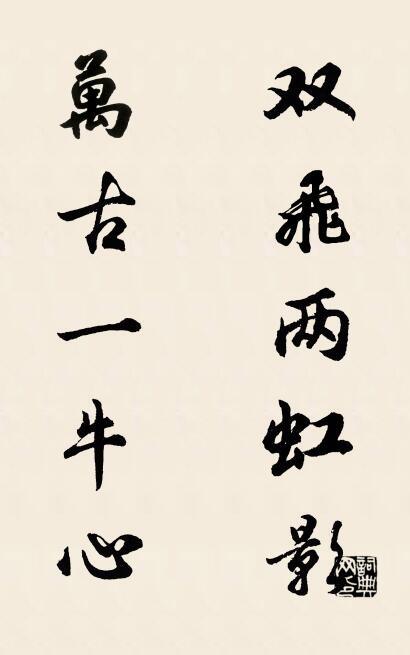 双飛两虹影
萬古一牛心
詞典
网